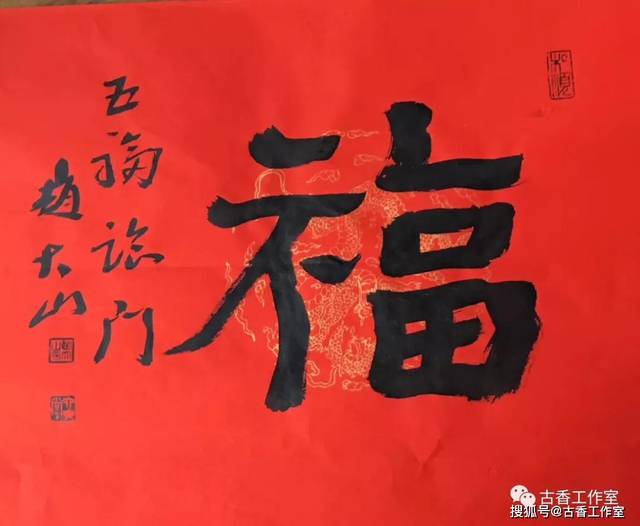 福
五福临门
赵大山
和顺
古香工作室
搜狐号@古香工作室